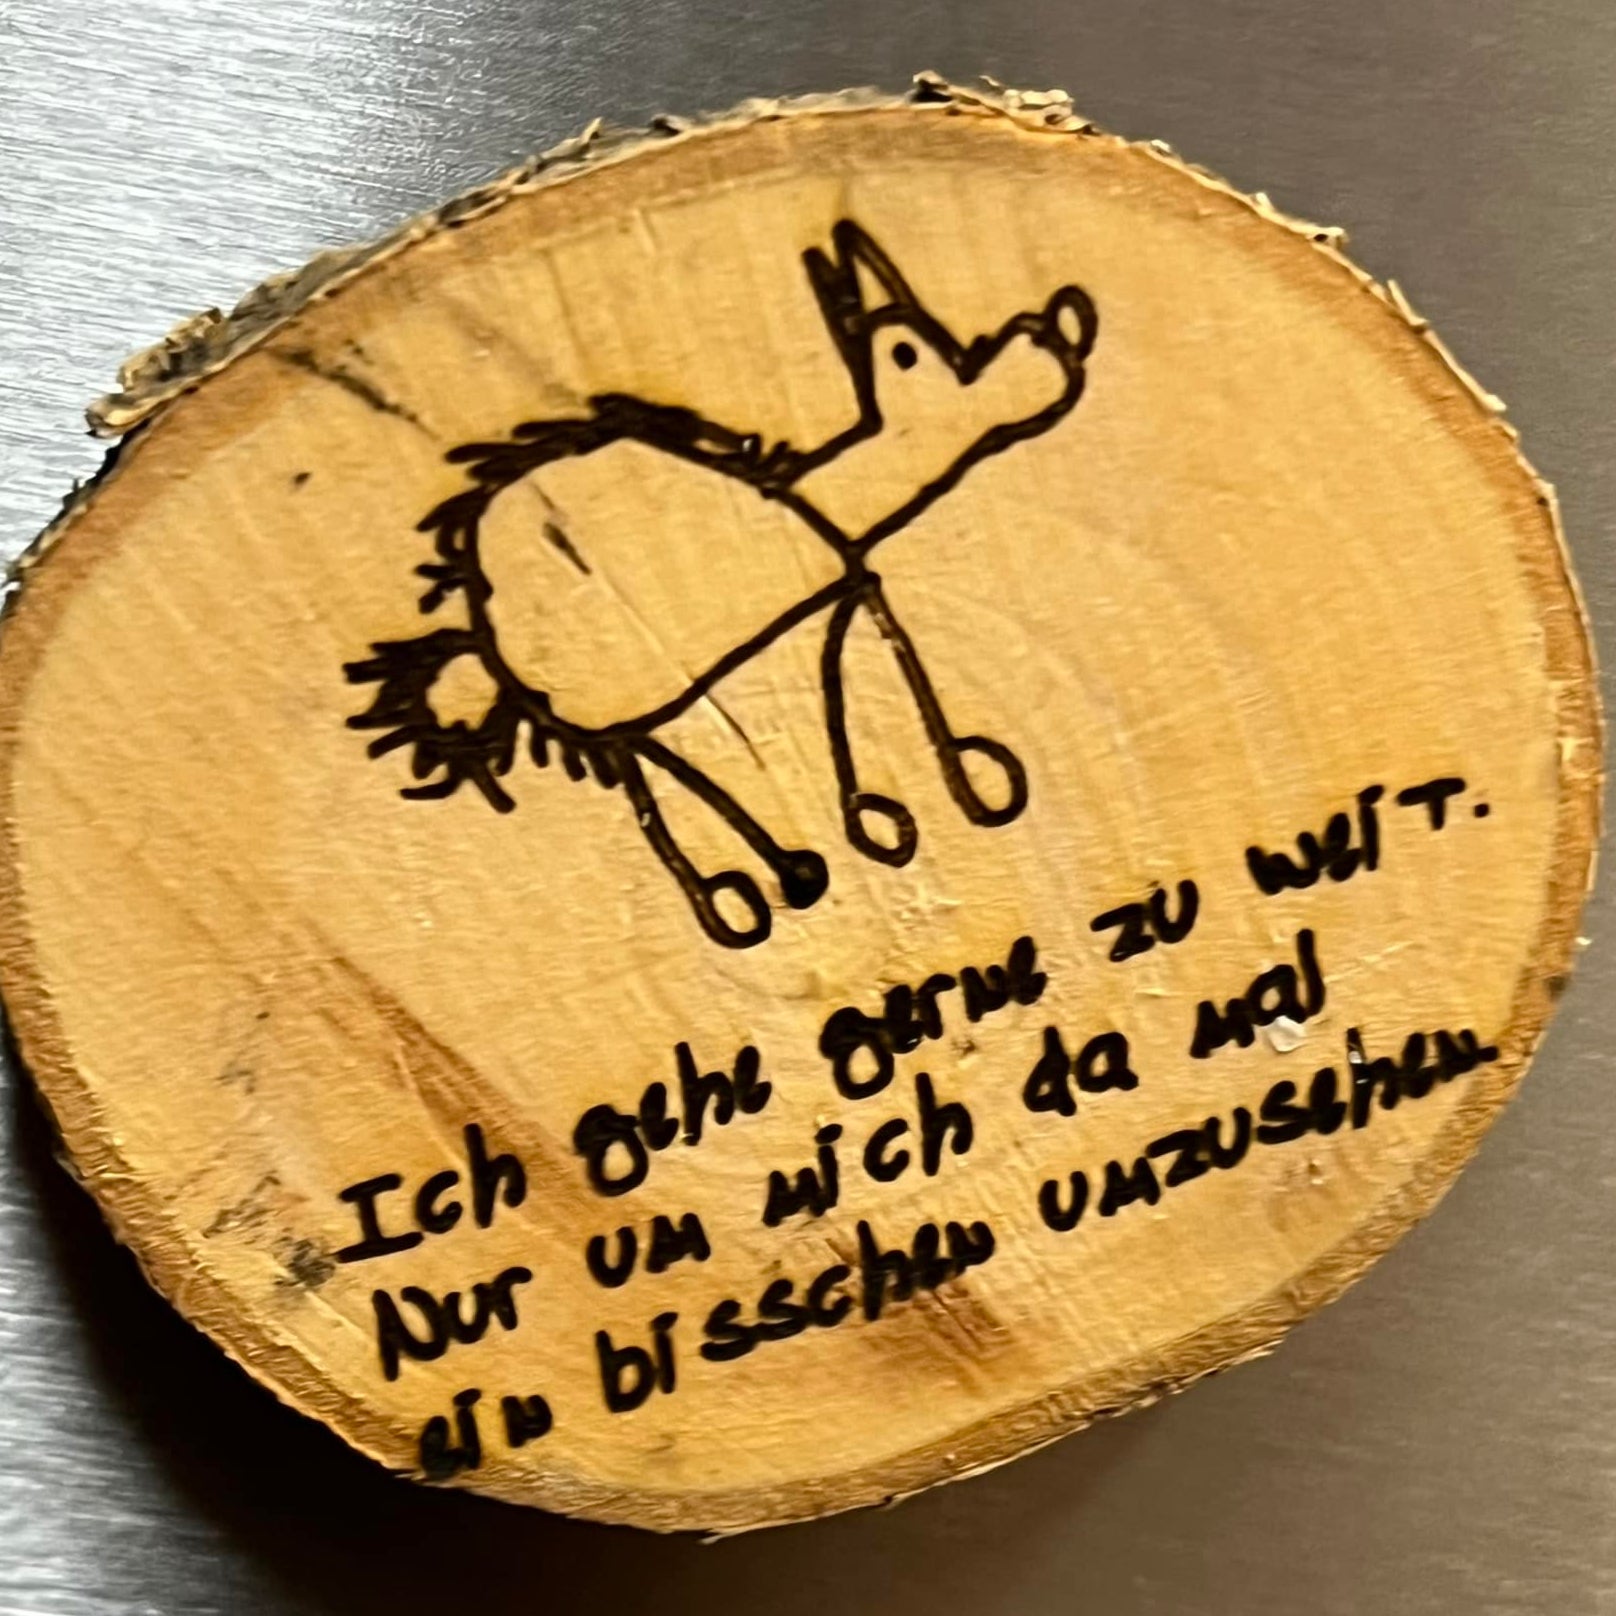 Ich gehe gerne zu weit.
Nur um mich da mal
ein bisschen umzusehen.